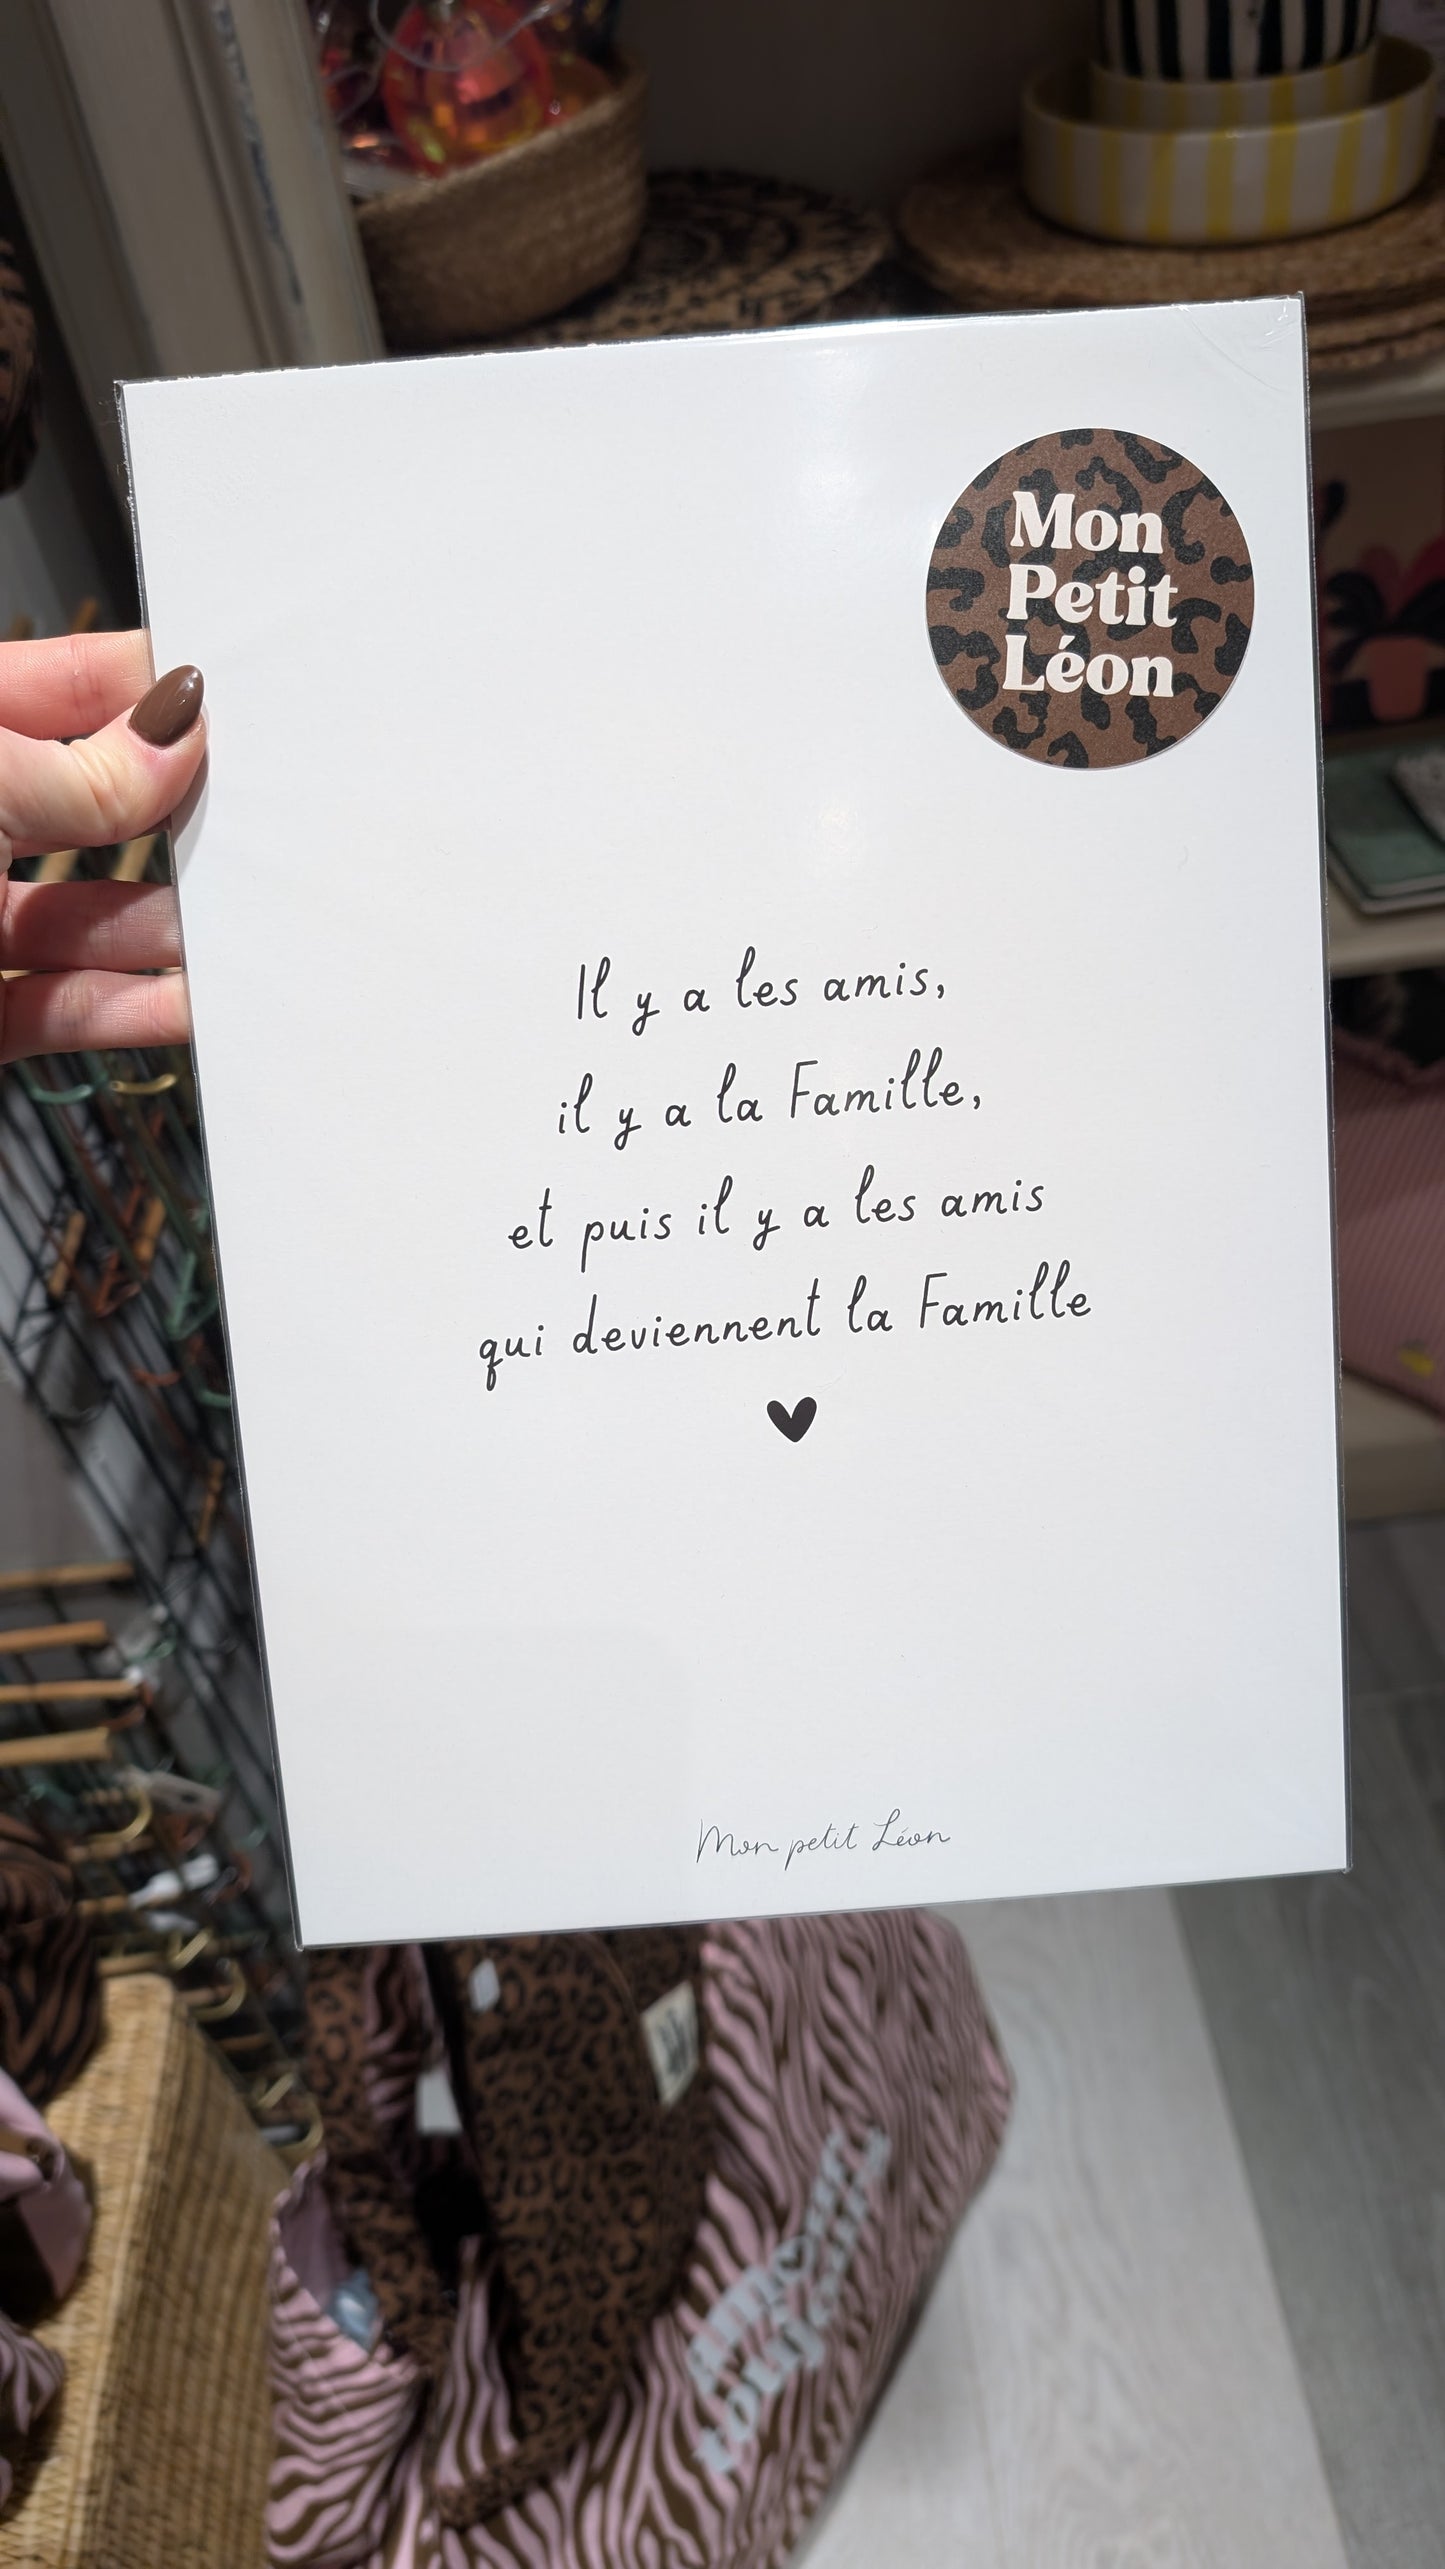 Mon
Petit
Léon
Il y a les amis,
il y a la Famille,
et puis il y a les amis
qui deviennent la Famille
Mon petit Léon
amour
toujours